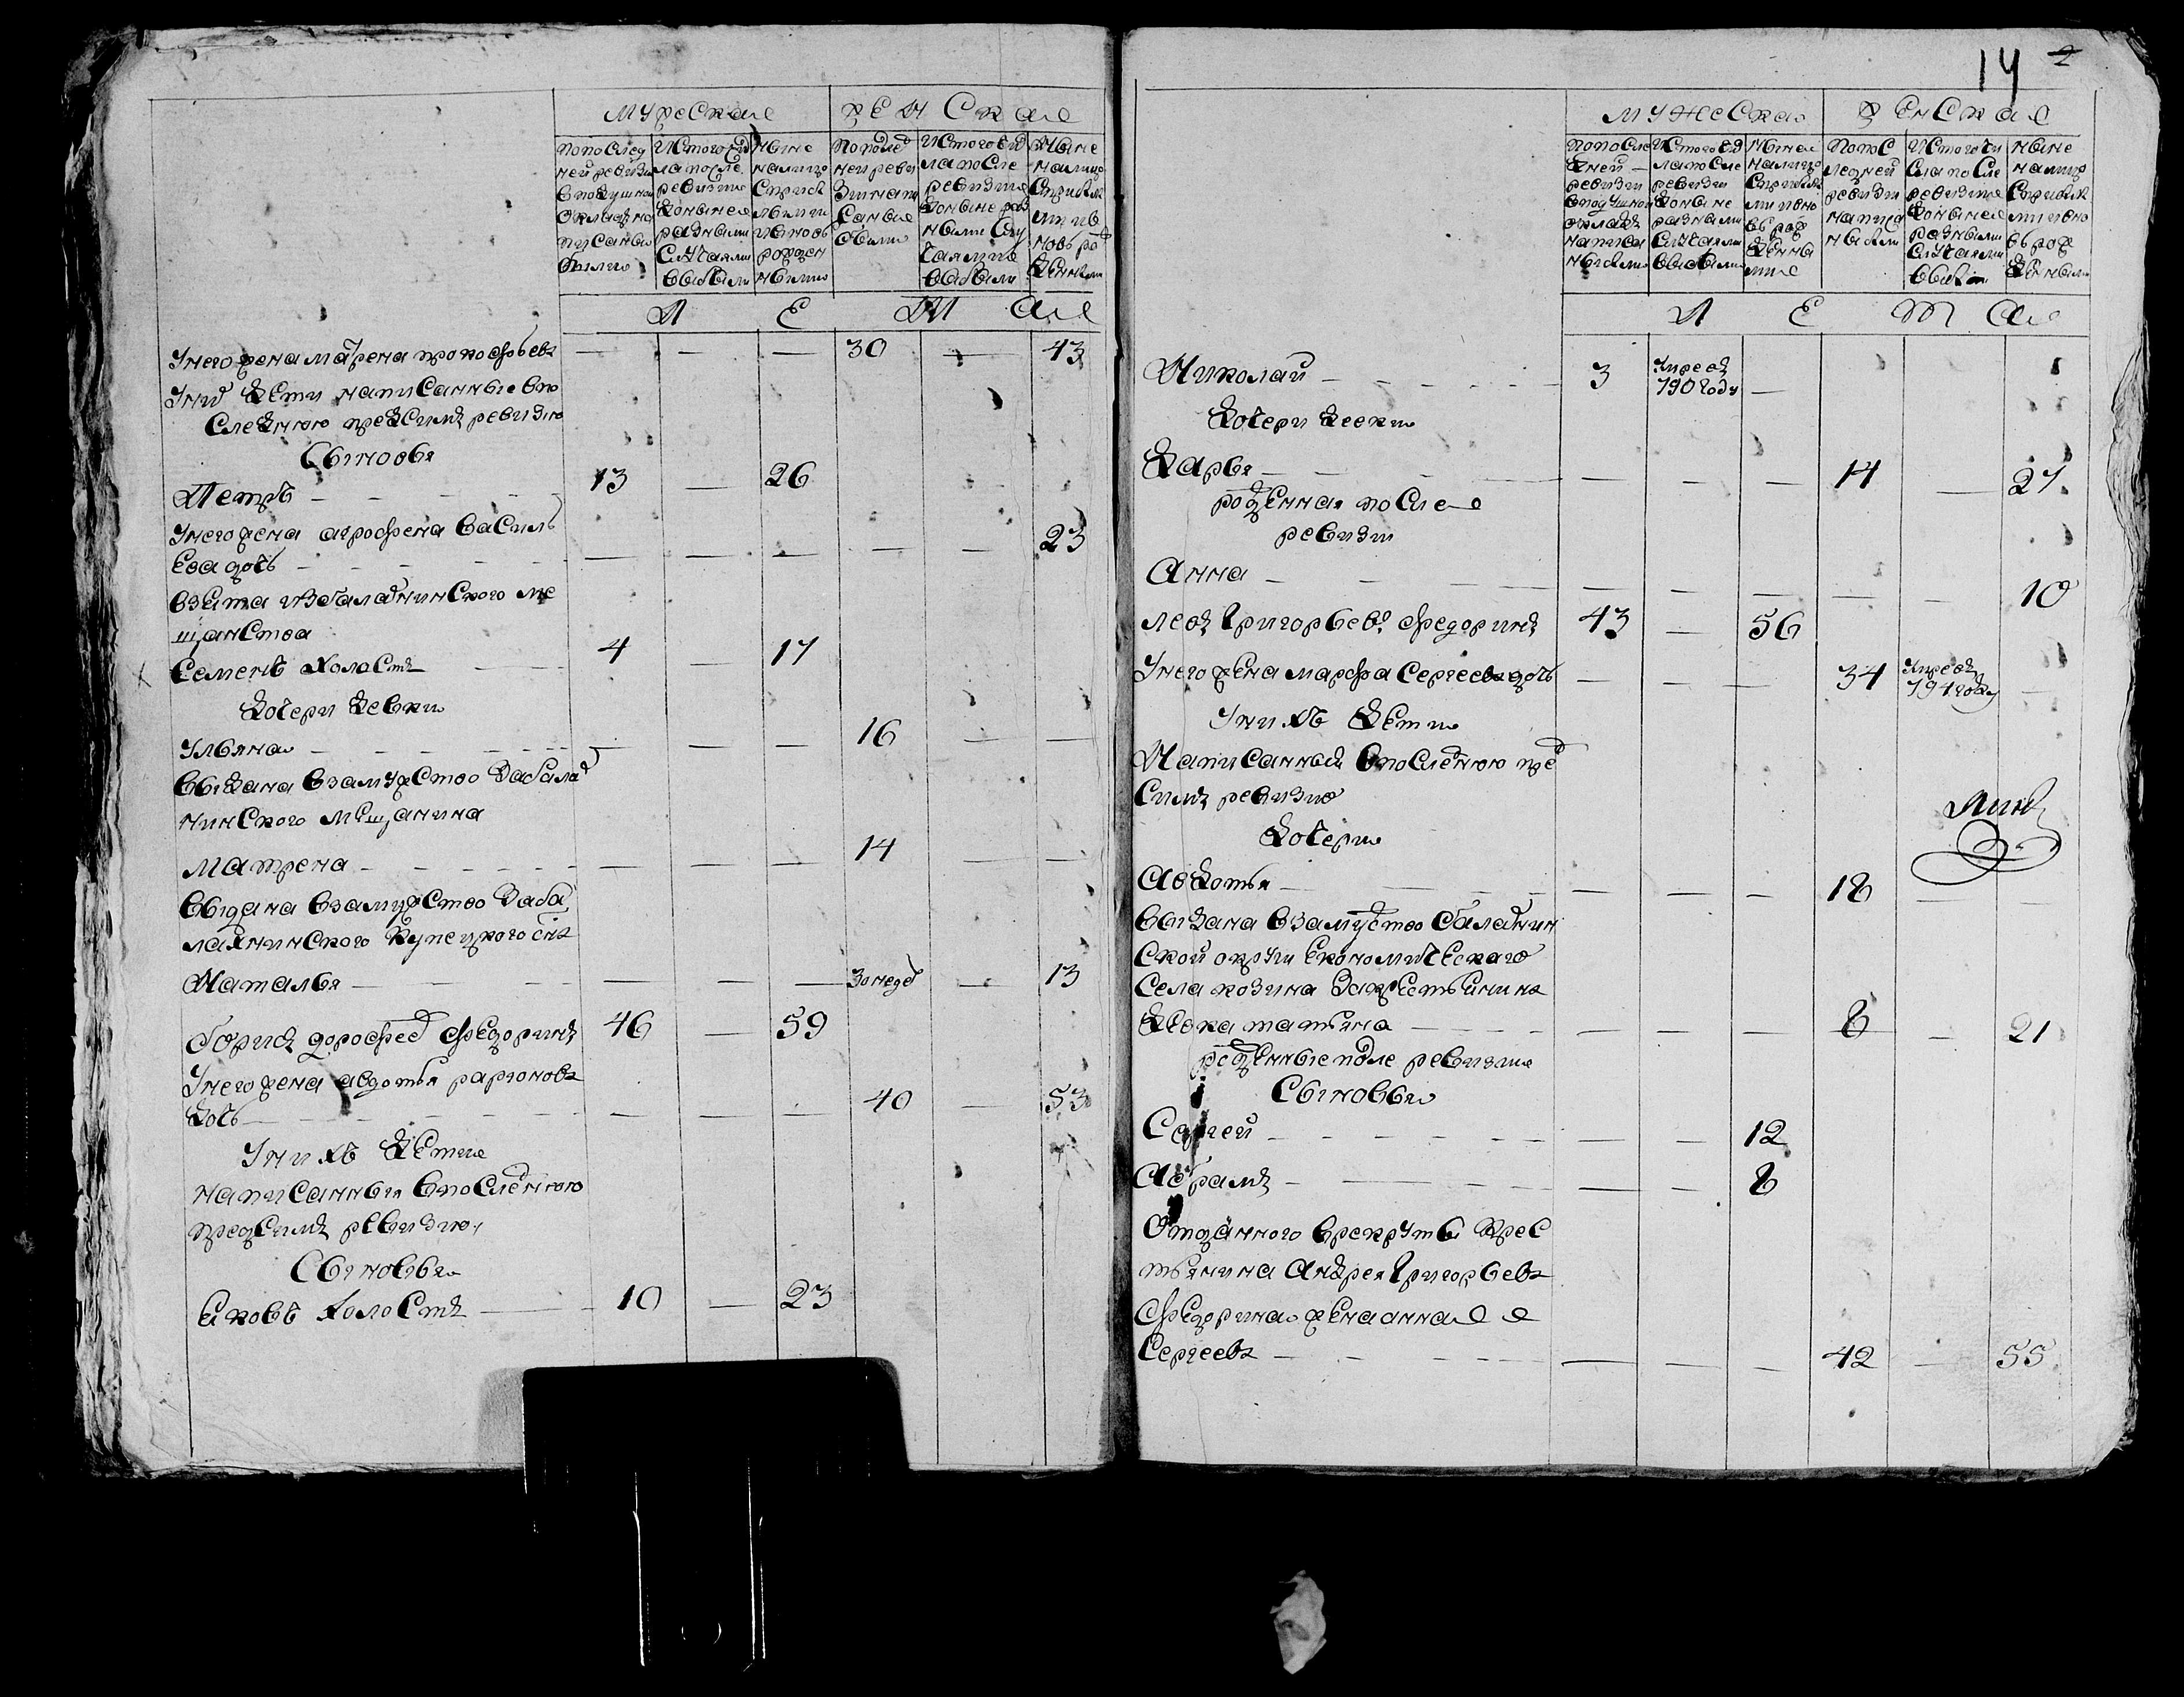 мужеска женска
попослед ней ревизи вподушном окладе написаны были
Истого числа после ревизии доныне разными случаями выбыли
Ныне налицо спри былыми и вновь рожденными
По последней ревизии написаные были
Истого числа после ревизии доныне разными случаями выбыли
Ныне налицо сприбылыми и вновь рожденными
Л Е Т А
Унего жена матрена прокофьева — — — 30 — 43
Уних дети написанные впо
следнюю предсимъ ревизию
Сыновья
Петръ — 13 — 26
Унего жена агрофена василь
ева дочь — — — — — — 23
взята избаладнинского ме
щанства
Семенъ холостъ — 4 — 17
Дочери девки
Ульяна — — — — 16 — —
выдана взамужство забалад
нинского мещанина
Матрена — — — — 14 — —
выдана взамужство заба
ладнинского купецкого сна
Наталья — — — — 3 недел — 13
Борисъ дорофеев федоринъ 46 — 59
Унего жена авдотья
дочь — — — — 40 — 53
Уних дети
написанныя впоследнюю
предсимъ ревизию
Сыновья
Яковъ холостъ — 10 — 23
14 2
мужеска женска
попоследней ревизии вподушном окладе написаными
Истого числа после ревизии доныне разными случаями выбыли
Ныне налицо сприбылыми и вновь рожденными
Попоследней ревизии написаными
Истого числа после ревизии доныне разными случаями выбыли
Ныне налицо сприбылыми и вновь рожденными
Л Е Т А
Николай — 3 Умре въ 790 году —
Дочери девки
Дарья — — — — 14 — 27
рожденная после
ревизии
Анна — — — — — — 10
Левъ григорьевъ федоринъ 43 — 56
Унего жена марфа сергеева дочь — — — 34 Умре въ 794 году —
Уних дети
Написанныя впоследнюю пред
симъ ревизию
Дочери
Авдотья — — — — 18 — —
выдана взамуство баладнин
ской округи економическаго
села козина закрестьянина
Девка татьяна — — — — 8 — 21
рожденные после ревизии
Сыновья
Сергей — — — 12
Абрамъ — — — 8
Отданного врекруты крес
тьянина андрея григорьева
федорина жена анна
Сергеева — — — — 42 — 55